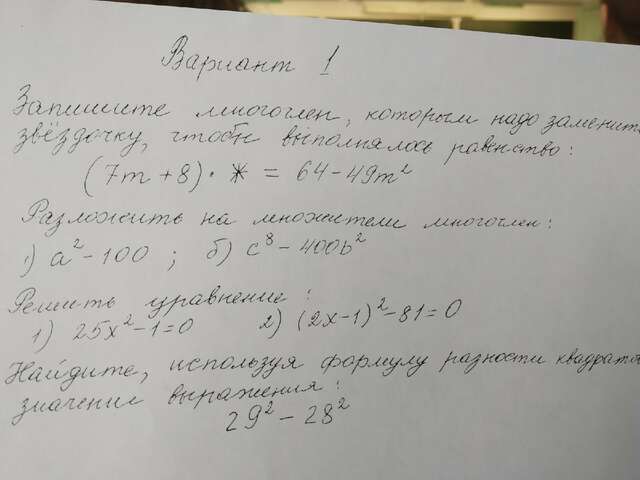 Вариант 1
Запишите многочлен, которым надо заменить
звёздочку, чтобы выполнялось равенство:
(7m+8)·* = 64-49m²
Разложить на множители многочлен:
1) a²-100 ; б) c⁸-400b²
Решить уравнение:
1) 25x²-1=0 2) (2x-1)²-81=0
Найдите, используя формулу разности квадратов
значение выражения:
29²-28²